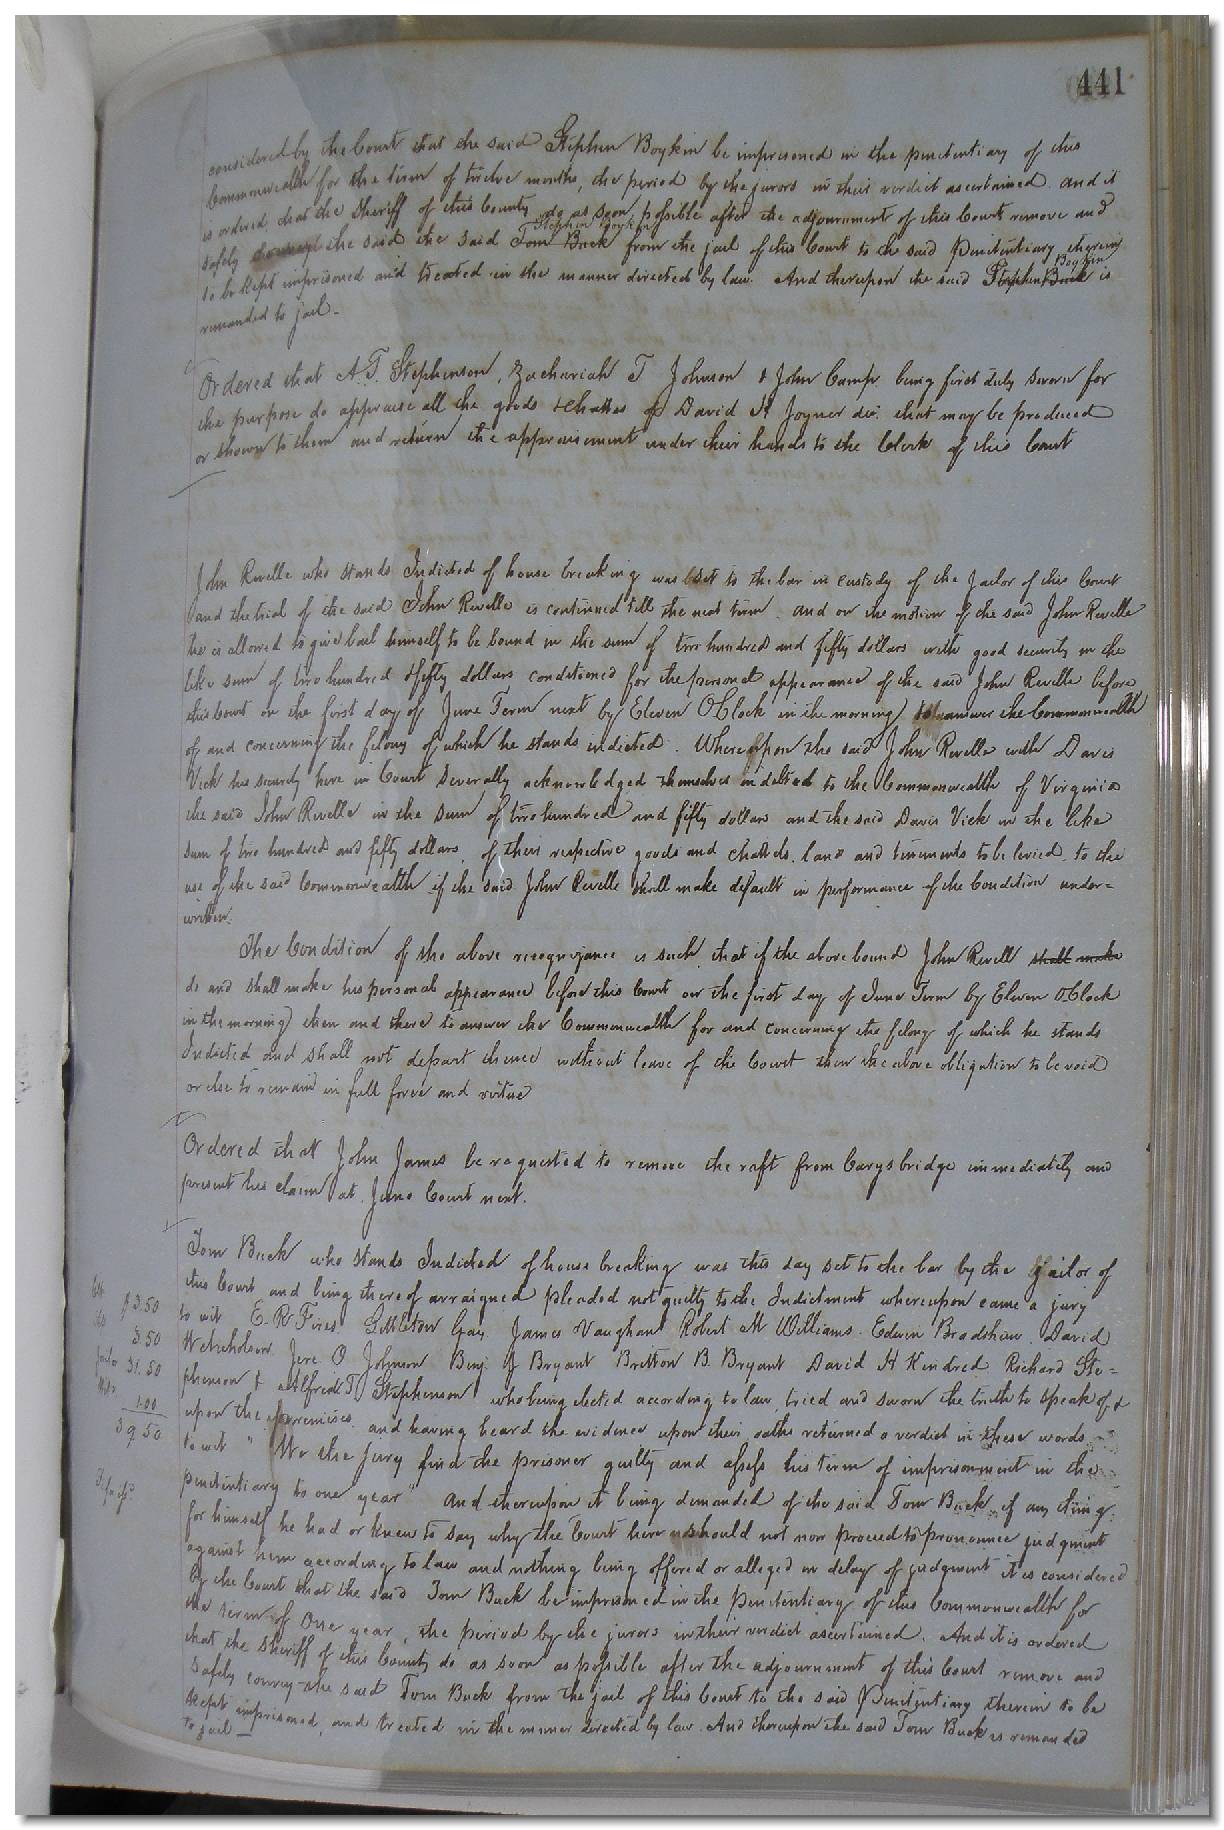 441
considered by the Court that the said Stephen Boykin be imprisoned in the penitentiary of this
Commonwealth for the term of twelve months, the period by the jurors in their verdict ascertained. and it
is ordered that the Sheriff of this County do as soon possible after the adjournment of this Court remove and
Stephen Boykin
safely convey the said the said Tom Buck from the jail of this Court to the said Penitentiary therein
Boykin
to be kept imprisoned and treated in the manner directed by law. And thereupon the said Stephen Buck is
remanded to jail.
Ordered that A. T. Stephenson, Zachariah T Johnson & John Camp, being first duly sworn for
the purpose do appraise all the goods & Chattes of David H Joyner dec. that may be produced
or shown to them and return the appraisement under their hands to the Clerk of this Court
John Revelle who stands Indicted of house breaking was set to the bar in custody of the Jailor of this Court
and the trial of the said John Revelle is continued till the next term. and on the motion of the said John Revelle
he is allowed to give bail himself to be bound in the sum of two hundred and fifty dollars with good security in the
like sum of two hundred & fifty dollars conditioned for the personal appearance of the said John Revelle before
this Court on the first day of June Term next by Eleven OClock in the morning) to answer the Commonwealth
of and concerning the felony of which he stands indicted. Whereupon the said John Revelle with Davis
Vick his security here in Court severally acknowledged themselves indebted to the Commonwealth of Virginia
the said John Revelle in the sum of two hundred and fifty dollars and the said Davis Vick in the like
sum of two hundred and fifty dollars, of their respective goods and chattels, land and tenements to be levied, to the
use of the said Commonwealth if the said John Revelle shall make default in performance of the Condition under=
written.
The Condition of the above recognizance is such, that if the above bound John Revell shall make
do and shall make his personal appearance before this Court on the first day of June Term by Eleven OClock
in the morning) then and there to answer the Commonwealth for and concerning the felony of which he stands
Indicted and shall not depart thence without leave of the Court then the above obligation to be void
or else to remain in full force and virtue
Ordered that John James be requested to remove the raft from Carys bridge immediately and
present his claim at June Court next.
Tom Buck who stands Indicted of house breaking was this day set to the bar by the Jailor of
this Court and being thereof arraigned pleaded not guilty to the Indictment whereupon came a jury
$3.50
to wit E. R. Fires. Littleton Gay. James Vaughan Robert M Williams. Edwin Bradshaw. David
3.50
W Nicholson Jere O Johnson Benj. J Bryant Britton B. Bryant David H Kendred Richard Ste=
Jailor 31.50
phenson & Alfred T Stephenson who being elected according to law tried and sworn the truth to speak of &
1.00
upon the premises. and having heard the evidence upon their oaths returned a verdict in these words
39.50
to wit " We the Jury find the prisoner guilty and assess his term of imprisonment in the
penitentiary to one year" And thereupon it being demanded of the said Tom Buck, if any thing
for himself he had or knew to say why the Court here should not now proceed to pronounce judgment
against him according to law and nothing being offered or alleged in delay of judgment it is considered
By the Court that the said Tom Buck be imprisoned in the Penitentiary of this Commonwealth for
the term of One year, the period by the jurors in their verdict ascertained. And it is ordered
that the Sheriff of this County do as soon as possible after the adjournment of this Court remove and
Safely convey the said Tom Buck from the jail of this Court to the said Penitentiary therein to be
kept imprisoned, and treated in the manner directed by law. And thereupon the said Tom Buck is remanded
to jail